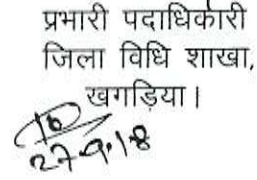 प्रभारी पदाधिकारी
जिला विधि शाखा,
खगड़िया।
27-9-18